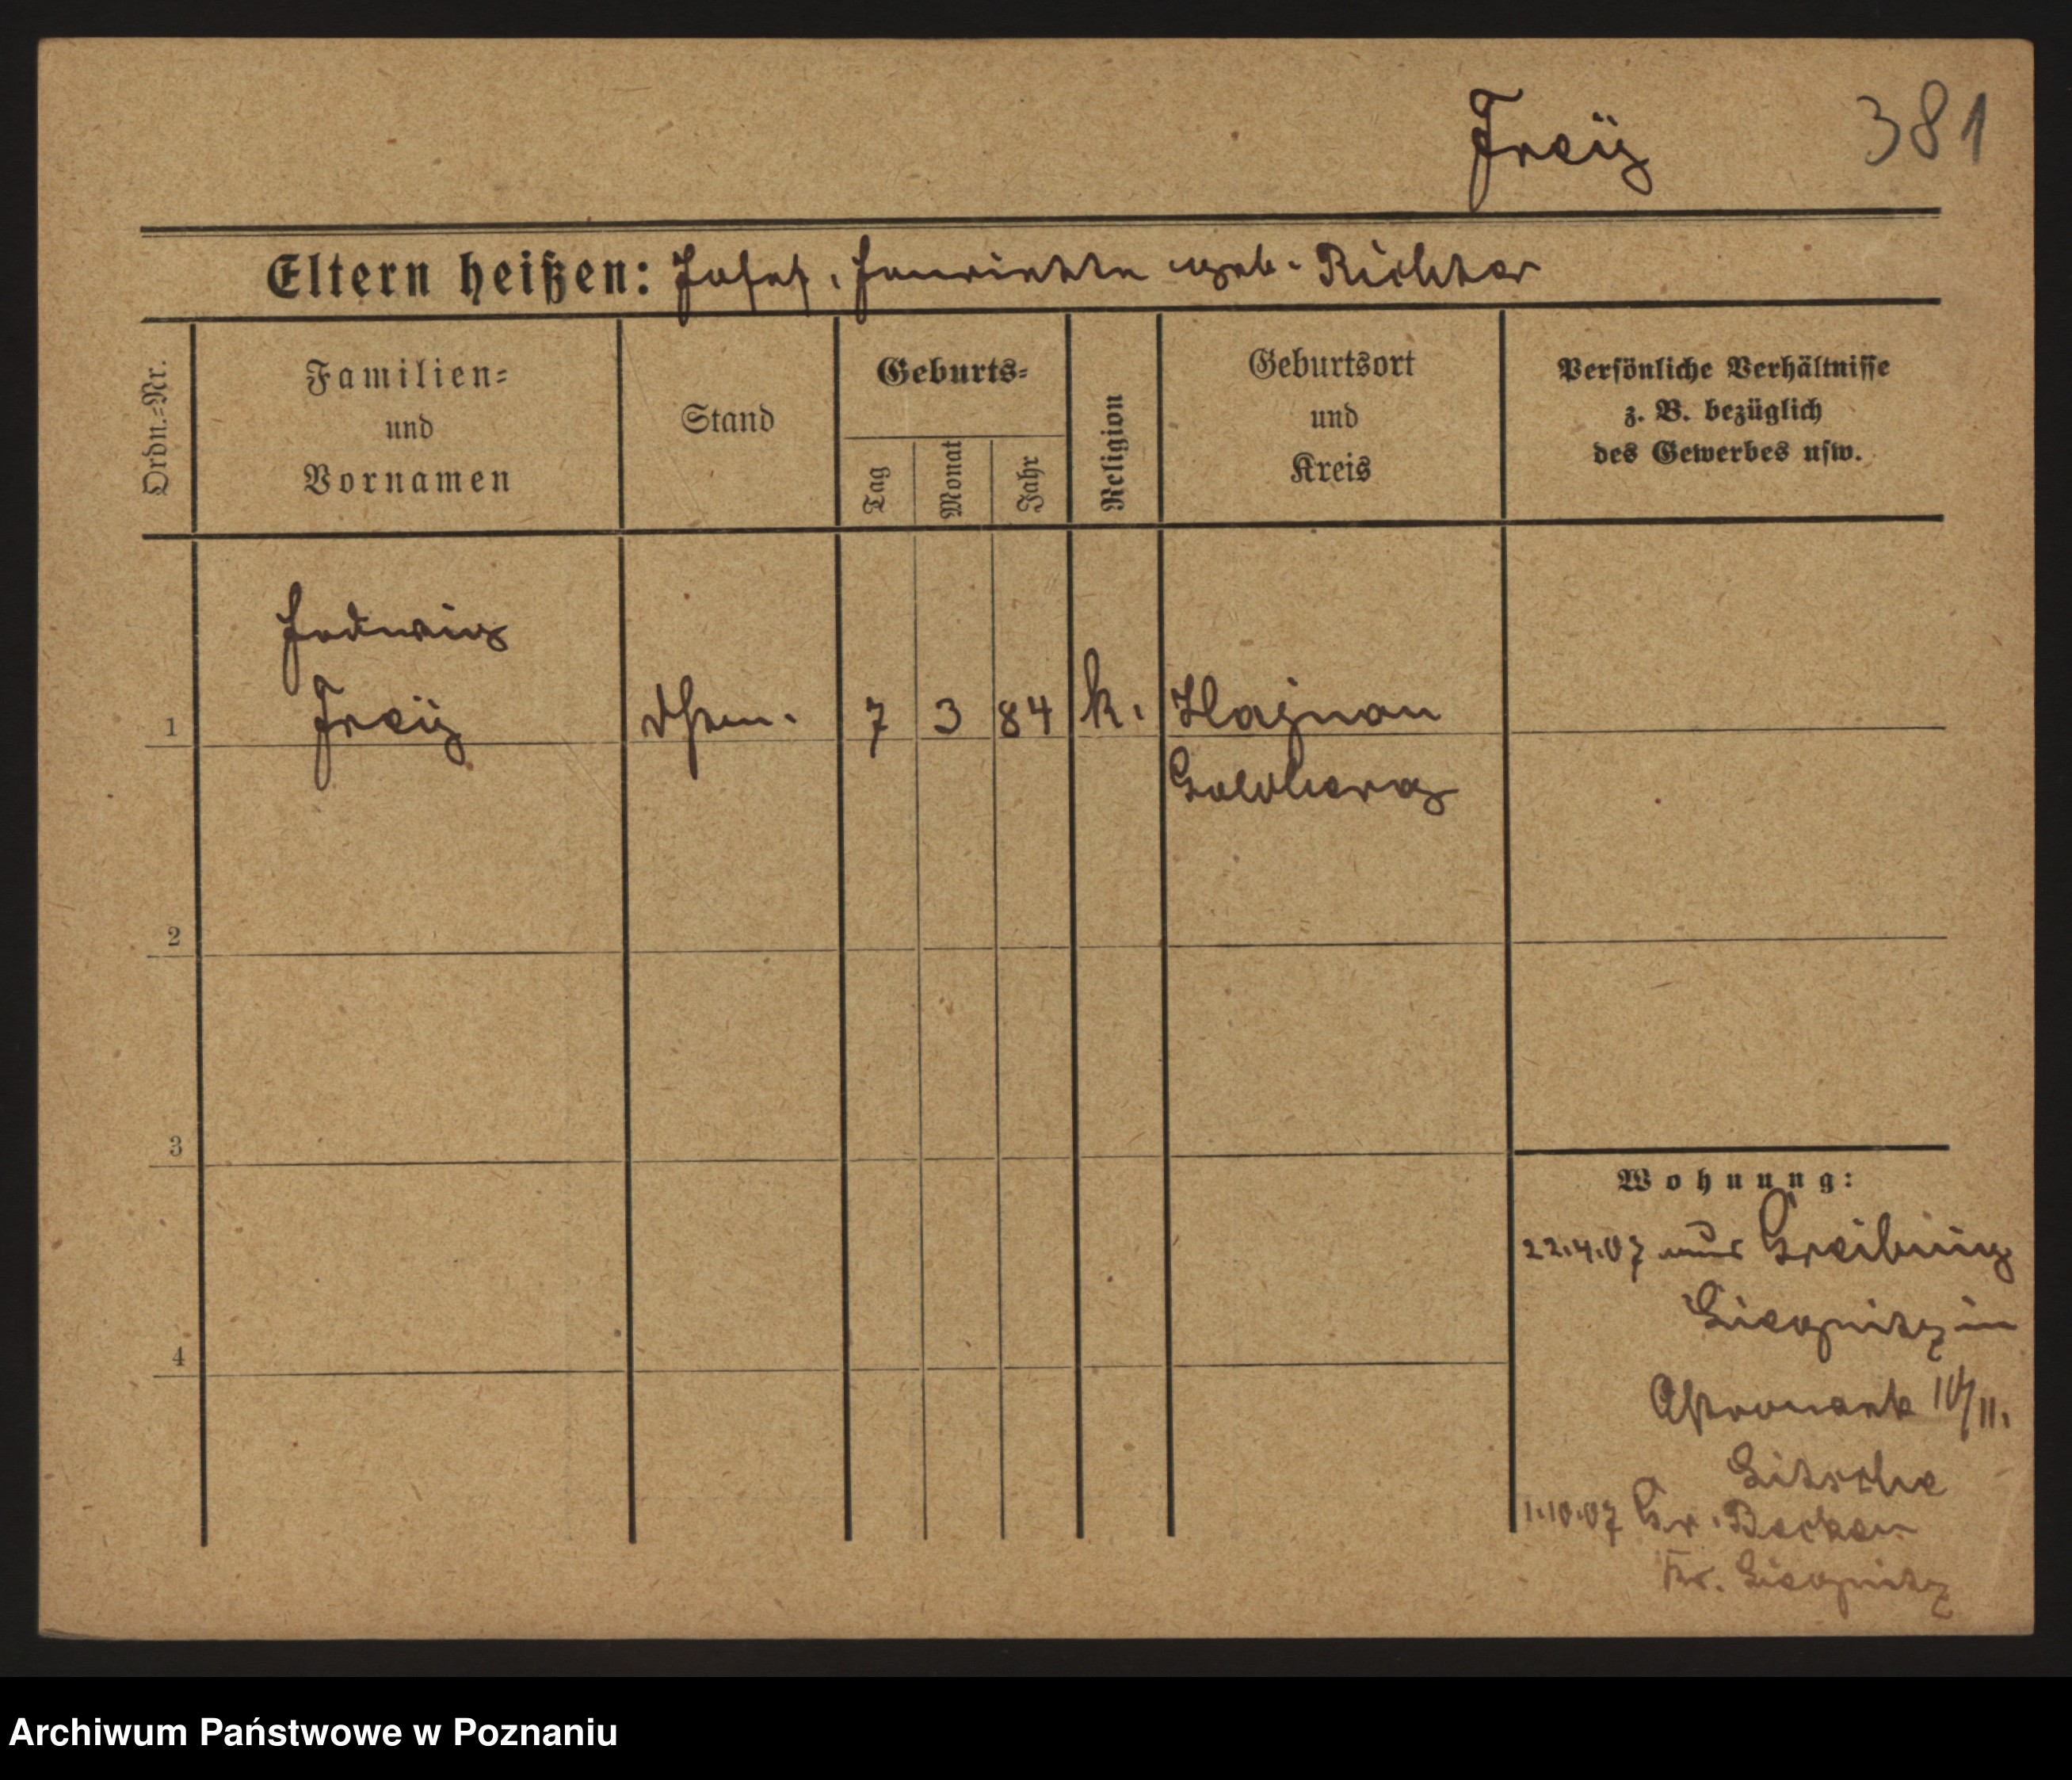 Freÿ 381
Eltern heißen: Josef, Henriette geb. Richter
Ordn.-Nr.
Familien-
und
Vornamen
Stand
Geburts-
Tag
Monat
Jahr
Religion
Geburtsort
und
Kreis
Persönliche Verhältnisse
z. B. bezüglich
des Gewerbes usw.
Hedwig
1 Freÿ 7 3 84 k. Haÿnau
Goldberg
2
3
4
Wohnung:
22.4.07 aus Greibnig
Liegnitz in
10/11.
1.10.07 Gr. Beckern
Kr. Liegnitz
Archiwum Państwowe w Poznaniu